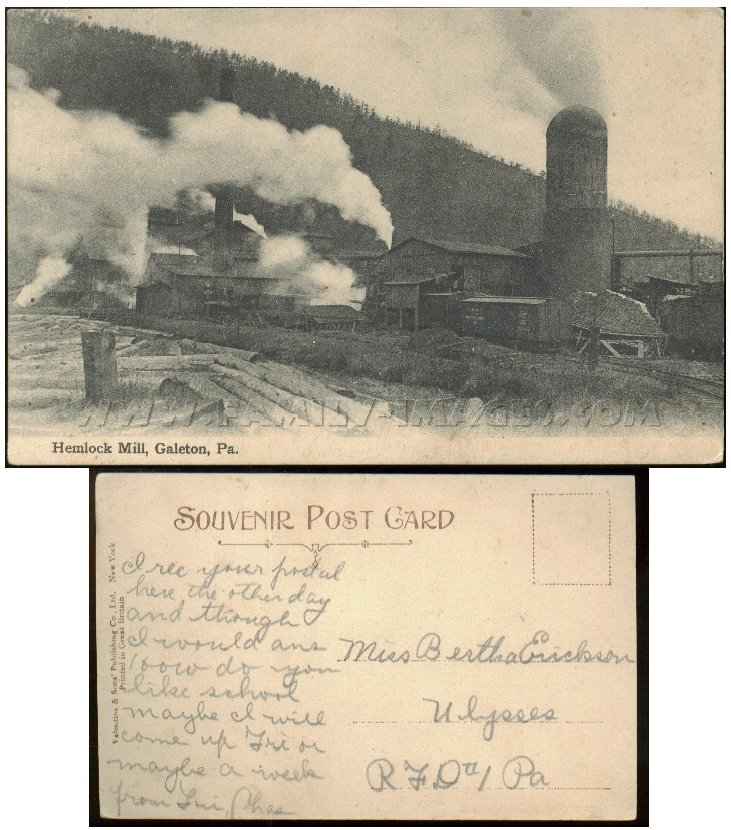 WWW.FAMILY-IMAGES.COM
Hemlock Mill, Galeton, Pa.
SOUVENIR POST CARD
Valentine & Sons' Publishing Co., Ltd. New York
Printed in Great Britain
I rec your postal
here the other day
and though
I would ans
How do you
like school
maybe I will
come up Fri or
maybe a week
from Fri, Chas
Miss Bertha Erickson
Ulysses
R.F.D #1 Pa